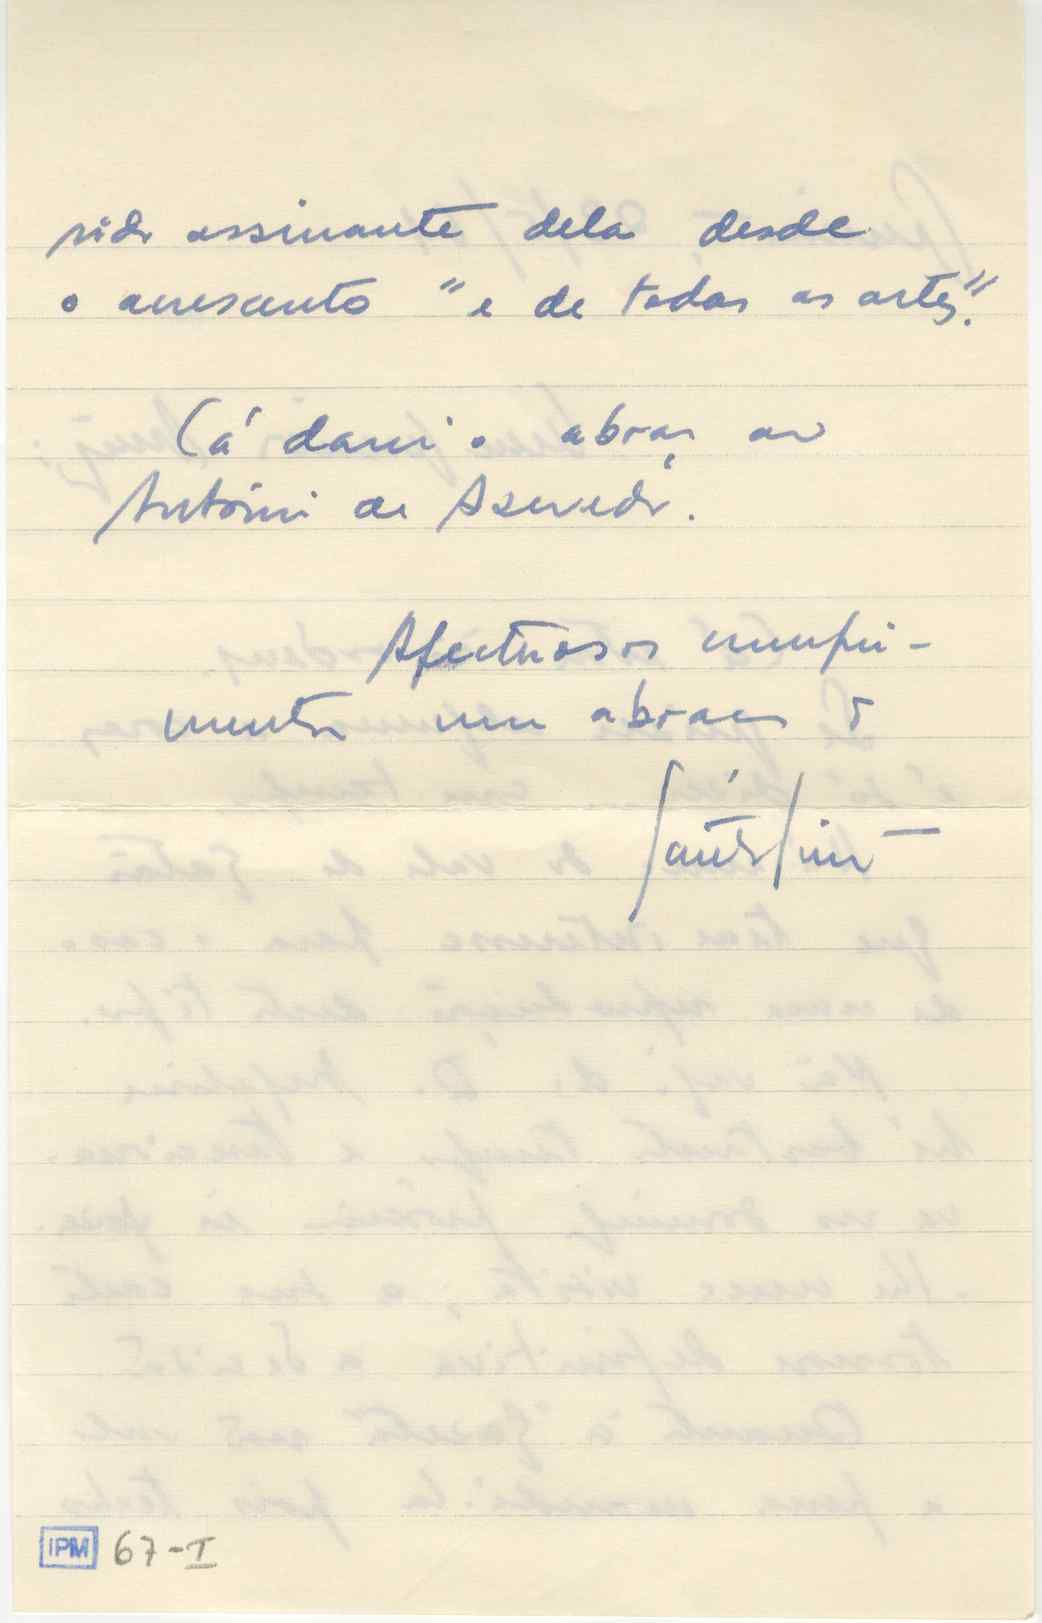 sido assinante dela desde
o acrescento "e de todas as artes".
Cá darei o abraço ao
António de Azevedo.
Afectuosos cumpri-
mentos num abraço do
Santos Simões
IPM 67-I